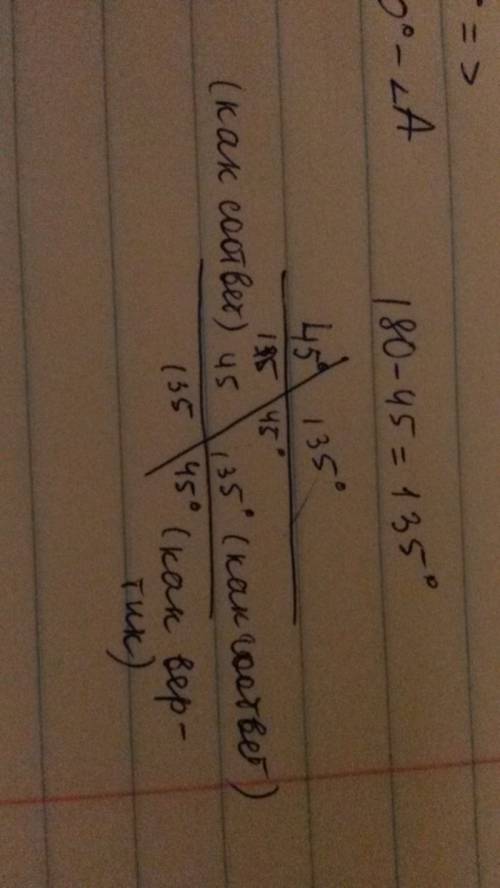 ° =>
0° - ∠A 180 - 45 = 135°
45° 135°
135 45°
(как соответ) 45 135° (как соответ)
135 45° (как вер-
тик)